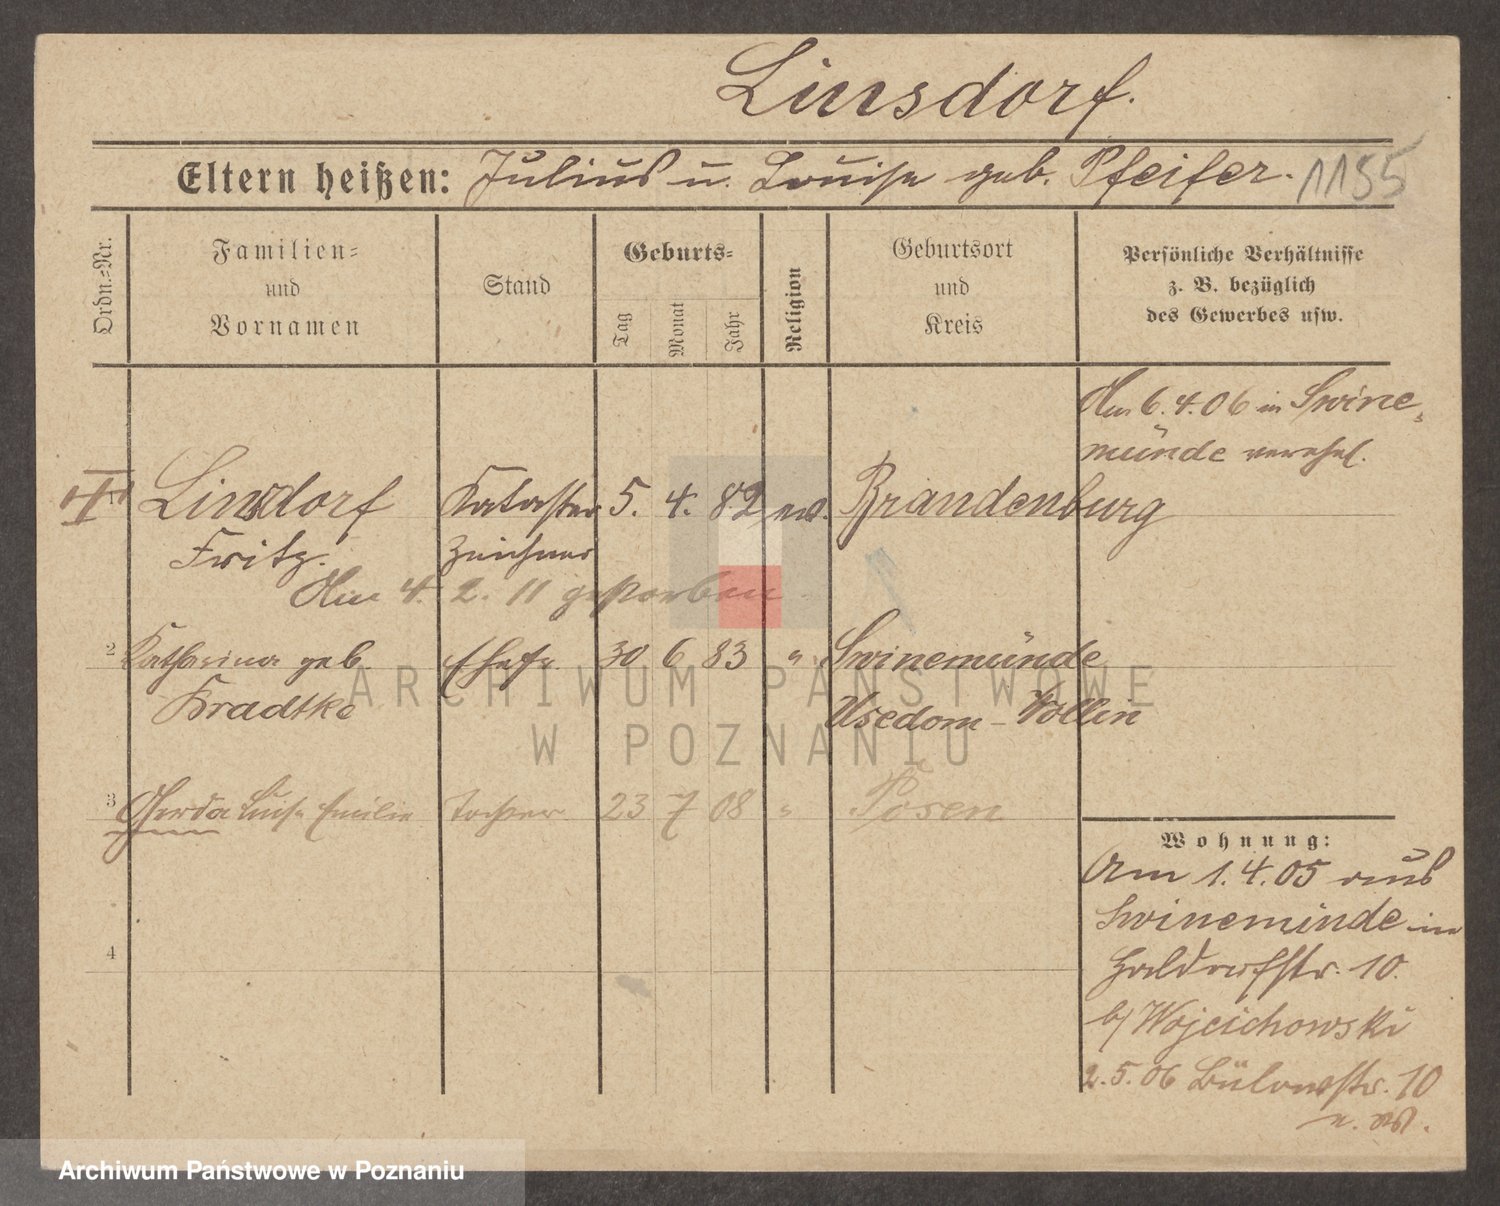 Linsdorf.
Eltern heißen: Julius u. Louise geb. Pfeifer. 1155
Ordn.=Nr.
Familien=
und
Vornamen
Stand
Geburts=
Tag
Monat
Jahr
Religion
Geburtsort
und
Kreis
Persönliche Verhältnisse
z. B. bezüglich
des Gewerbes usw.
Am 6.4.06 in Swine-
münde verehel.
Linsdorf Kataster 5. 4. 82 ev. Brandenburg
Fritz. Zeichner
Am 4. 2. 11 gestorben
2 Katharina geb. Ehefr. 30 6 83 " Swinemünde
Kradtke Usedom-Wollin
3 Gerda Luise Emilie Tochter 23 7 08 " Posen
4
Wohnung:
Am 1.4.05 aus
Swineminde in
str. 10.
b/ Wojcichowski
2.5.06 Bülowstr. 10
ARCHIWUM PAŃSTWOWE
W POZNANIU
Archiwum Państwowe w Poznaniu